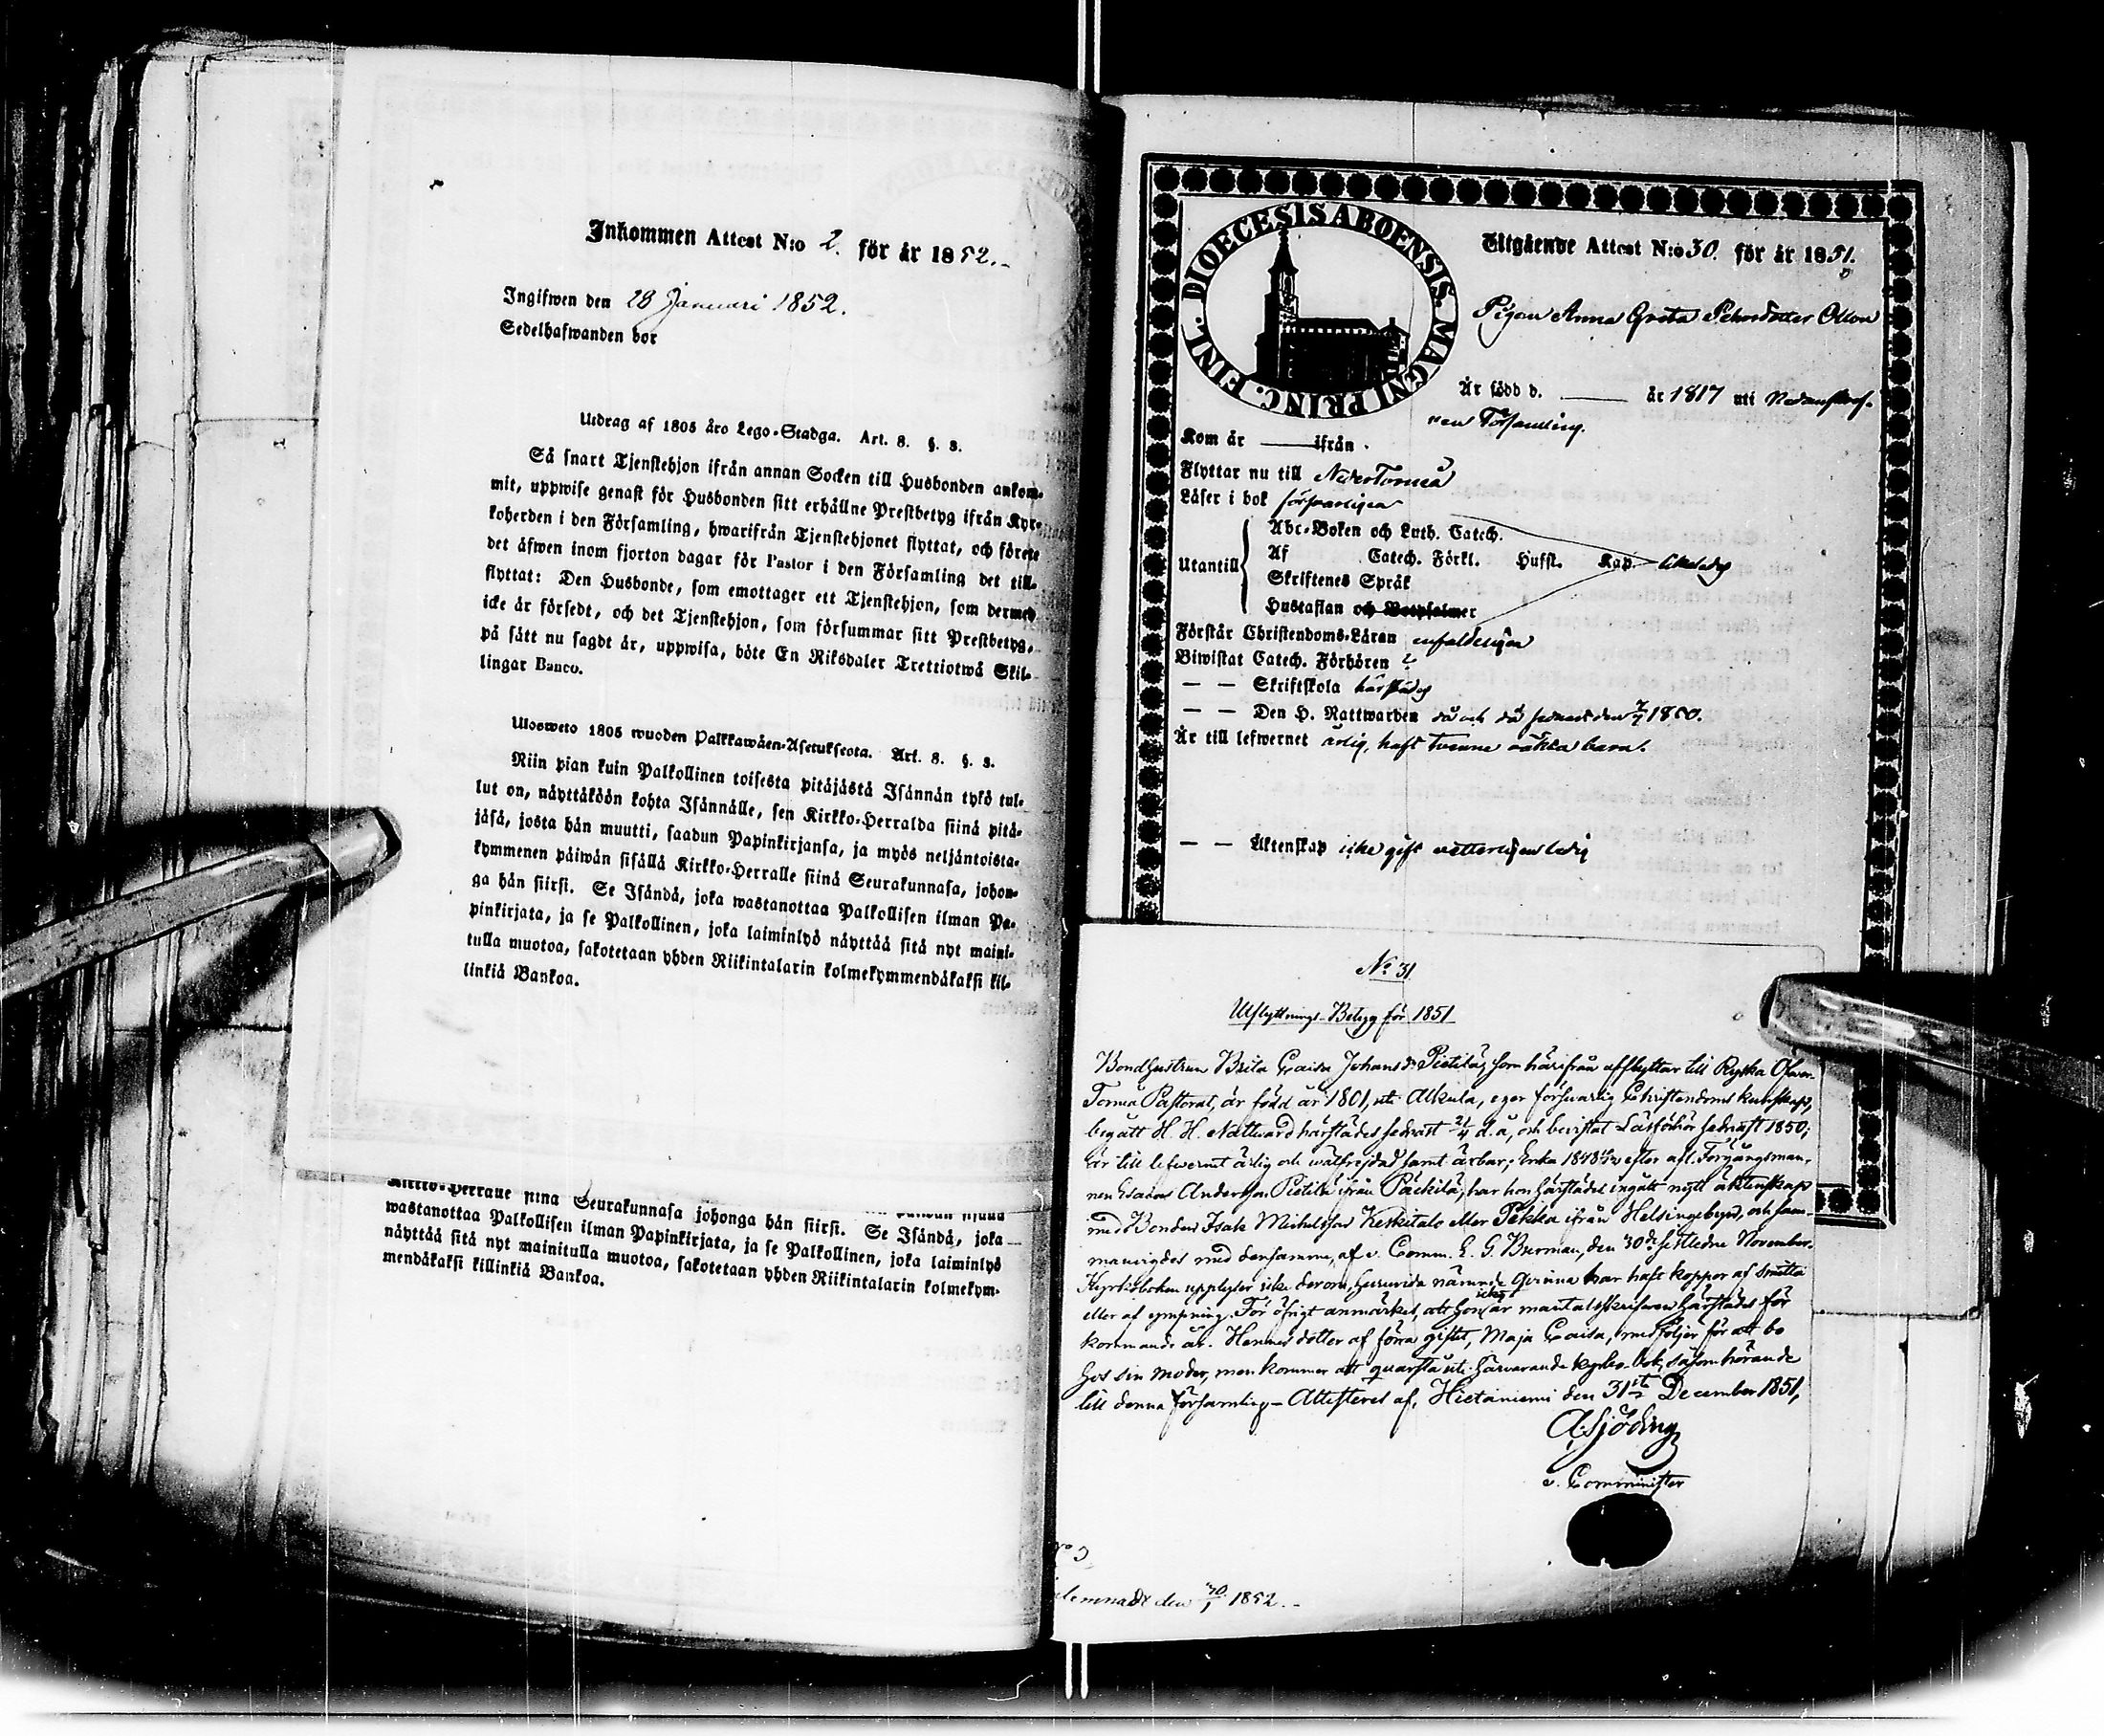 Inkommen Attest N:o 2. för år 1852.
Ingifwen den 28 Januari 1852.
Sedelhafwanden bor
Utdrag af 1805 åro Lego-Stadga. Art. 8. §. 3.
Så snart Tjenstehjon ifrån annan Socken till Husbonden ankom-
mit, uppwise genast för Husbonden sitt erhållne Prestbetyg ifrån Kyr-
koherden i den Församling, hwarifrån Tjenstehjonet flyttat, och förete
det äfwen inom fjorton dagar för Pastor i den Församling det till-
flyttat: Den Husbonde, som emottager ett Tjenstehjon, som dermed
icke är försedt, och det Tjenstehjon, som försummar sitt Prestbetyg,
på sätt nu sagdt är, uppwisa, böte En Riksdaler Trettiotwå Skil-
lingar Banco.
Ulosweto 1805 wuoden Palkkawäen-Asetuksesta. Art. 8. §. 3.
Niin pian kuin Palkollinen toisesta pitäjästä Isännän tykö tul-
lut on, näyttäköön kohta Isännälle, sen Kirkko-Herralda siinä pitä-
jäsä, josta hän muutti, saadun Papinkirjansa, ja myös neljäntoista-
kymmenen päiwän sisällä Kirkko-Herralle siinä Seurakunnasa, johon-
ga hän siirsi. Se Isändä, joka wastanottaa Palkollisen ilman Pa-
pinkirjata, ja se Palkollinen, joka laiminlyö näyttää sitä nyt maini-
tulla muotoa, sakotetaan yhden Riikintalarin kolmekymmendäkaksi kil-
linkiä Bankoa.
Kirkko-Herralle siinä Seurakunnasa johonga hän siirsi. Se Isändä, joka
wastanottaa Palkollisen ilman Papinkirjata, ja se Palkollinen, joka laiminlyö
näyttää sitä nyt mainitulla muotoa, sakotetaan yhden Riikintalarin kolmekym-
mendäkaksi killinkiä Bankoa.
DIOECESIS ABOENSIS. MAGNI PRINC. FINL.
Utgående Attest N:o 30. för år 1851.
Pigan Anna Greta Pehrsdotter Ollon
Är född d. — år 1817 uti
Församling.
Kom år — ifrån
Flyttar nu till Neder Torneå
Läser i bok försvarligen
Abc-Boken och Luth. Catech.
Af Catech. Förkl. Husst. Kap.
Utantill
Skriftenes Språk
Hustaflan och Botpsalmer
Förstår Christendoms-Läran enfaldeligen
Biwistat Catech. Förhören
— — Skriftskola härstädes
— — Den H. Nattwarden då och då sednast den
Är till lefwernet ärlig, haft tvenne oäkta barn.
— — Äktenskap icke gift veterligen ledig
No 31
Utflyttnings-Betyg för 1851
Bondhustrun Brita Caisa Johansdr Pietilä, som härifrån afflyttar till Ryska Öfver-
Torneå Pastorat, är född år 1801, uti Alkula, eger försvarlig Christendoms kunskap,
begått H. H. Nattvard härstädes sednast d. å, och bevistat Läsförhör sednast 1850;
är till lefwernet ärlig och wälfrejdad samt ärbar; Enka efter afl. Förgångsman-
nen Esaias Andersson Pietilä ifrån Päckilä, har hon härstädes ingått nytt äktenskap
med Bonden Isak Michelsson Keskitalo eller Pekka ifrån Helsingebyn, och sam-
manvigdes med densamme, af v. Comm. E. G. Burman, den 30de sistledne November.
Kyrkoboken upplyser icke derom, huruvida nämnde qvinna har haft koppor af smitta
eller af ympning. För öfrigt anmärkes, att hon icke är mantalsskrifwen härstädes för
kommande år. Hennes dotter af förra giftet, Maja Caisa, medföljer för att bo
hos sin moder, men kommer att quarstå uti härvarande kyrko-bok, såsom hörande
till denna församling — Attesteras af, Hietaniemi den 31st December 1851,
A. Sjöding
v. Comminister
No 3
lemnadt den 30/1 1852.